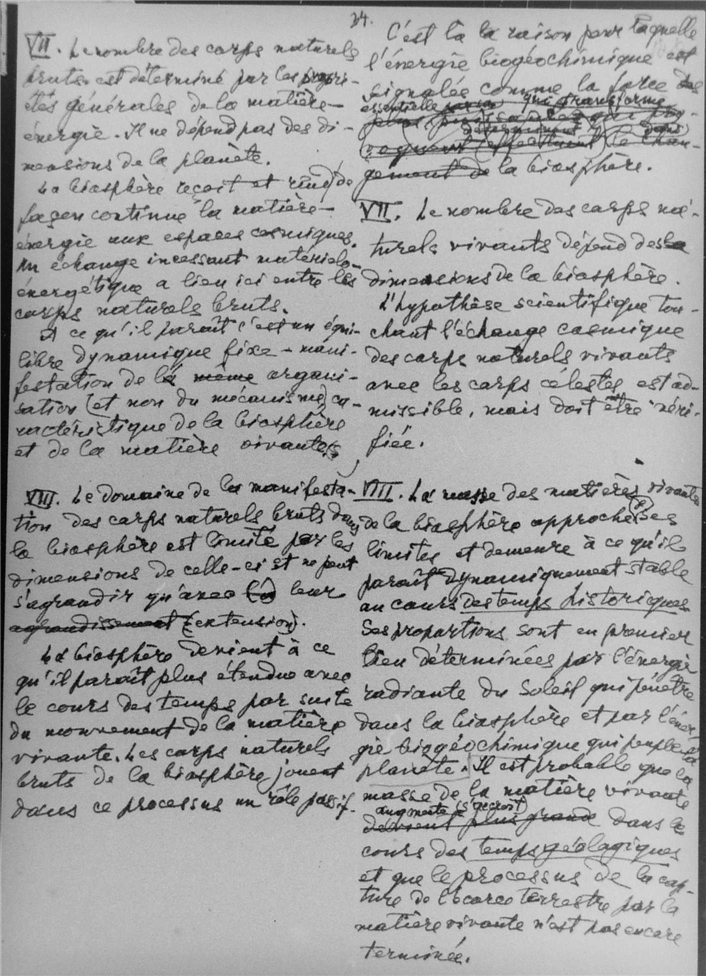 24.
VII. Le nombre des corps naturels
bruts est déterminé par les propri-
étés générales de la matière-
énergie. Il ne dépend pas des di-
mensions de la planète.
La biosphère reçoit et rend de
façon continue la matière-
énergie aux espaces cosmiques.
Un échange incessant matérielo-
énergétique a lieu ici entre les
corps naturels bruts.
A ce qu'il parait c'est un équi-
libre dynamique fixe – mani-
festation de la même organi-
sation (et non du mécanisme) ca-
ractéristique de la biosphère
et de la matière vivante.
VIII. Le domaine de la manifesta-
tion des corps naturels bruts dans
la biosphère est limité par les
dimensions de celle-ci et ne peut
s'agrandir qu'avec leur
agrandissement (extension).
La biosphère devient à ce
qu'il parait plus étendue avec
le cours des temps par suite
du mouvement de la matière
vivante. Les corps naturels
bruts de la biosphère jouent
dans ce processus un rôle passif.
C'est là la raison pour laquelle
l'énergie biogéochimique est
signalée comme la force des
essentielle que transforme
déterminant dans
le chan-
gement de la biosphère.
VII. Le nombre des corps na-
turels vivants dépend des
dimensions de la biosphère.
L'hypothèse scientifique tou-
chant l'échange cosmique
des corps naturels vivants
avec les corps célestes est ad-
missible, mais doit être véri-
fiée.
VIII. La masse des matières vivante
de la biosphère approche ses
limites et demeure à ce qu'il
parait dynamiquement stable
au cours des temps historiques.
Ses proportions sont en premier
lieu déterminées par l'énergie
radiante du Soleil qui pénètre
dans la biosphère et par l'éner-
gie biogéochimique qui peuple la
planète. Il est probable que la
masse de la matière vivante
augmente (s'accroît)
devient plus grande dans le
cours des temps géologiques
et que le processus de la cap-
ture de l'écorce terrestre par la
matière vivante n'est pas encore
terminé.